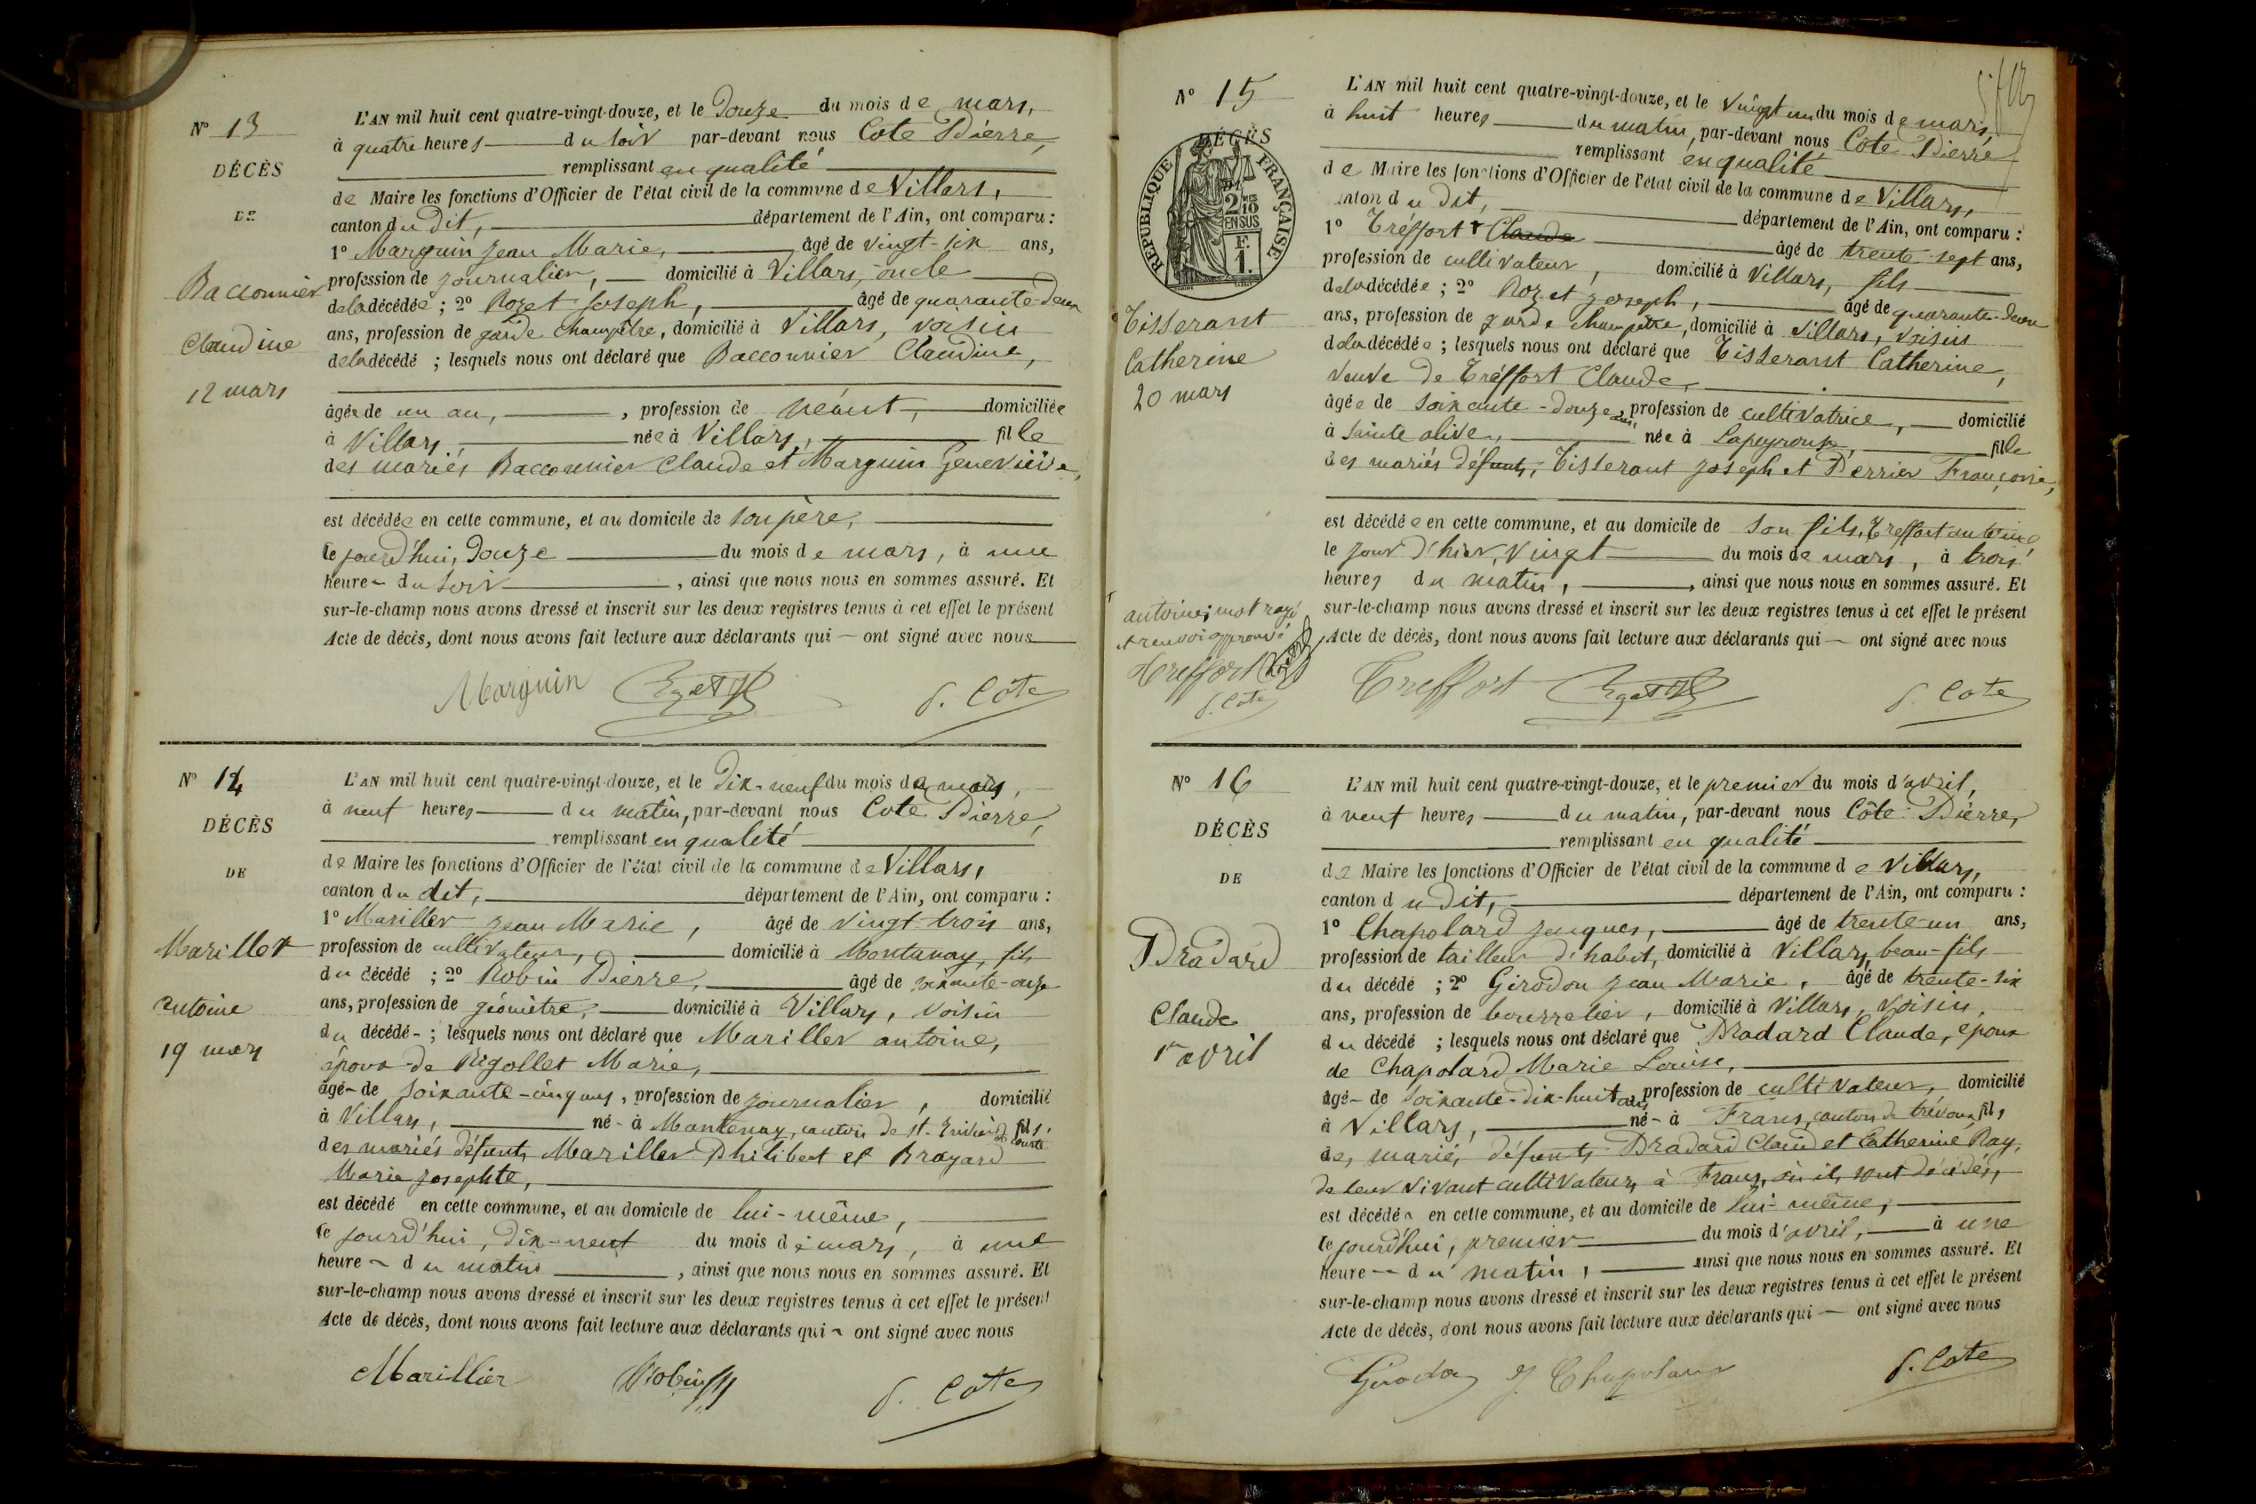 N° 13
DÉCÈS
DE
Bacconnier
Claudine
12 mars
L'AN mil huit cent quatre-vingt-douze, et le Douze du mois de mars,
à quatre heures du soir par-devant nous Cote Pierre,
remplissant en qualité
de Maire les fonctions d'Officier de l'état civil de la commune de Villars,
canton du Dit, département de l'Ain, ont comparu :
1° Marguin Jean Marie, âgé de vingt-six ans,
profession de journalier, domicilié à Villars, oncle
de la décédée ; 2° Rozet Joseph, âgé de quarante-deux
ans, profession de garde champêtre, domicilié à Villars, voisin
de la décédé ; lesquels nous ont déclaré que Bacconnier Claudine,
âgée de un an, , profession de néant, domiciliée
à Villars, née à Villars, fille
des mariés Bacconnier Claude et Marguin Geneviève,
est décédée en cette commune, et au domicile de son père,
le jourd'hui, Douze du mois de mars, à une
heure du soir , ainsi que nous nous en sommes assuré. Et
sur-le-champ nous avons dressé et inscrit sur les deux registres tenus à cet effet le présent
Acte de décès, dont nous avons fait lecture aux déclarants qui ont signé avec nous
Marguin Rozet P. Cote
N° 14
DÉCÈS
DE
Mariller
antoine
19 mars
L'AN mil huit cent quatre-vingt-douze, et le Dix-neuf du mois de mars,
à neuf heures du matin, par-devant nous Cote Pierre,
remplissant en qualité
de Maire les fonctions d'Officier de l'état civil de la commune de Villars,
canton du dit, département de l'Ain, ont comparu :
1° Mariller Jean Marie, âgé de vingt trois ans,
profession de cultivateur, domicilié à Montanay, fils
du décédé ; 2° Robin Pierre, âgé de soixante-onze
ans, profession de géomètre, domicilié à Villars, voisin
du décédé ; lesquels nous ont déclaré que Mariller antoine,
époux de Rigollet Marie,
âgé de soixante-cinq ans, profession de journalier, domicilié
à Villars, né à Montenay, canton de st. fils
des mariés défunts Mariller Philibert et Brayard
Marie Josephte,
est décédé en cette commune, et au domicile de lui-même,
le jourd'hui, dix-neuf du mois de mars, à une
heure du matin , ainsi que nous nous en sommes assuré. Et
sur-le-champ nous avons dressé et inscrit sur les deux registres tenus à cet effet le présent
Acte de décès, dont nous avons fait lecture aux déclarants qui ont signé avec nous
Marillier Robin P. Cote
N° 15
DÉCÈS
RÉPUBLIQUE FRANÇAISE
2/10 EN SUS
F. 1.
Tisserant
Catherine
20 mars
L'AN mil huit cent quatre-vingt-douze, et le vingt un du mois de mars,
à huit heures du matin, par-devant nous Cote Pierre
remplissant en qualité
de Maire les fonctions d'Officier de l'état civil de la commune de Villars,
canton du dit, département de l'Ain, ont comparu :
1° Tréffort Claude âgé de trente-sept ans,
profession de cultivateur, domicilié à Villars, fils
de la décédée ; 2° Rozet Joseph, âgé de quarante-deux
ans, profession de garde champêtre, domicilié à Villars, voisin
de la décédée ; lesquels nous ont déclaré que Tisserant Catherine,
veuve de Tréffort Claude,
âgée de soixante-douze ans, profession de cultivatrice, domicilié
à Sainte olive, née à Lapeyrouse, fille
des mariés défunts, Tisserant Joseph et Perrier Françoise,
est décédée en cette commune, et au domicile de son fils, Treffort antoine,
le jour d'hier, vingt du mois de mars, à trois
heures du matin, , ainsi que nous nous en sommes assuré. Et
sur-le-champ nous avons dressé et inscrit sur les deux registres tenus à cet effet le présent
Acte de décès, dont nous avons fait lecture aux déclarants qui ont signé avec nous
antoine; mot rayé
et renvoi approuvé
Treffort
P. Cote
Treffort Rozet P. Cote
N° 16
DÉCÈS
DE
Pradard
Claude
1er avril
L'AN mil huit cent quatre-vingt-douze, et le premier du mois d'avril,
à neuf heures du matin, par-devant nous Côte Pierre,
remplissant en qualité
de Maire les fonctions d'Officier de l'état civil de la commune de Villars,
canton du dit, département de l'Ain, ont comparu :
1° Chapolard Jacques, âgé de trente-un ans,
profession de tailleur d'habit, domicilié à Villars, beau-fils
du décédé ; 2° Girodon Jean Marie, âgé de trente-six
ans, profession de bourrelier, domicilié à Villars, voisin,
du décédé ; lesquels nous ont déclaré que Pradard Claude, époux
de Chapolard Marie Louise,
âgé de soixante-dix-huit ans profession de cultivateur, domicilié
à Villars, né à Frans, canton de trévoux, fils
des mariés défunts Pradard Claud et Catherine Ray,
de leur vivant cultivateurs à Frans, où ils sont décédés,
est décédé en cette commune, et au domicile de lui-même,
le jourd'hui, premier du mois d'avril, à une
heure du matin, ainsi que nous nous en sommes assuré. Et
sur-le-champ nous avons dressé et inscrit sur les deux registres tenus à cet effet le présent
Acte de décès, dont nous avons fait lecture aux déclarants qui ont signé avec nous
Girodon J Chapolard P. Cote